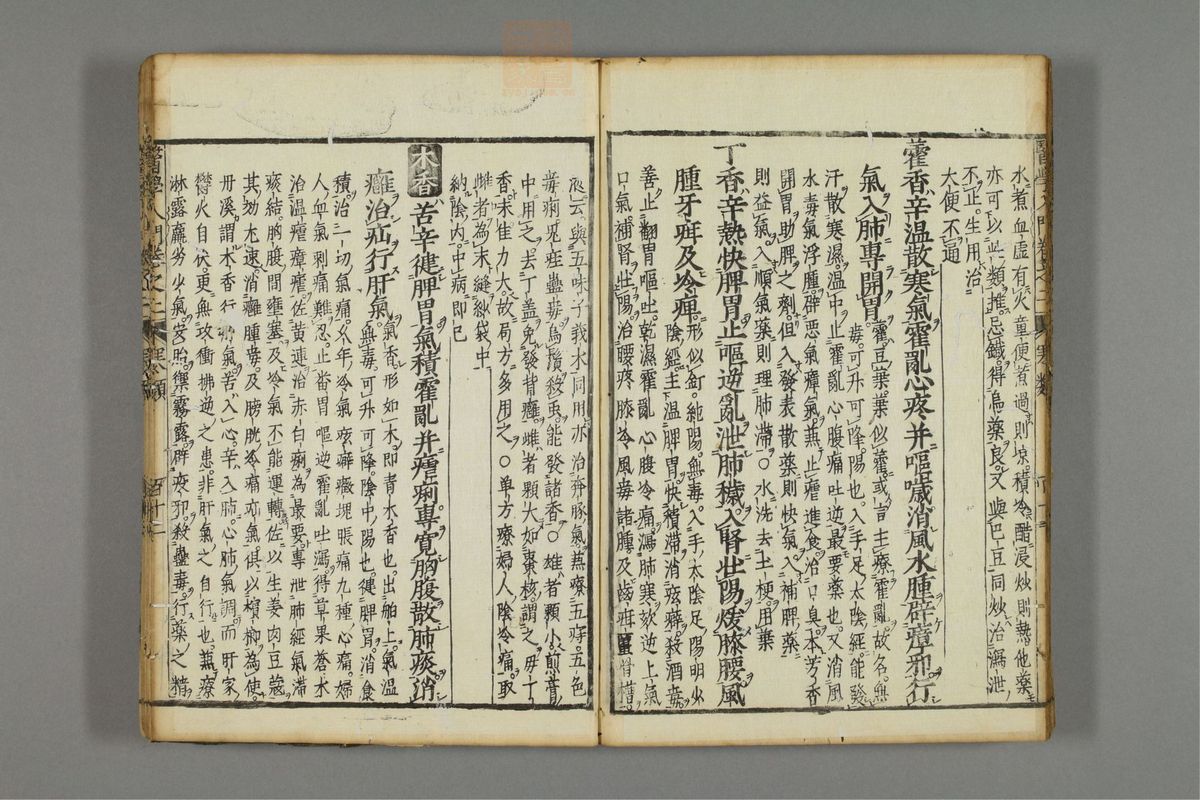 水煮血虛有火童便煮過則凉積冷醋浸炒則熱他藥
亦可以此類推忌鐵得烏藥良又與巴豆同炒治瀉泄
不止生用治
大便不通
藿香辛溫散寒氣霍亂心疼并嘔噦消風水腫辟瘴邪行
氣入肺專開胃藿豆葉葉似藿或言主療霍亂故名無
毒可升可降陽也入手足太陰經能發
汗散寒濕溫中止霍亂心腹痛吐逆最要藥也又消風
水毒氣浮腫辟惡氣瘴氣兼止瘧進食治口臭本芳香
開胃助脾之劑但入發表散藥則快氣入補脾藥
則益氣入順氣藥則理肺滯○水洗去土梗用葉
丁香辛熱快脾胃止嘔逆亂泄肺穢入腎壯陽煖膝腰風
腫牙疳及冷痺形似釘純陽無毒入手太陰足陽明少
陰經主溫脾胃快積滯消痃癖殺酒毒
善止翻胃嘔吐乾濕霍亂心腹冷痛瀉肺寒欬逆上氣
口氣補腎壯陽治腰疼膝冷風毒諸腫及齒疳
液云與五味子我朮同用亦治奔豚氣兼療五痔五色
毒痢兒疰蠱毒烏鬚殺虫能發諸香○雄者顆小煎膏
中用之去丁盖免發背癰雌者顆大如棗核謂之毋丁
香味佳力大故局方多用之○单方療婦人陰冷痛取
雌者為末縫紗袋中
納陰内中病即已
木香苦辛健脾胃氣積霍亂并瘧痢專寛胸腹散肺痰消
癰治疝行肝氣氣香形如木即青木香也出舶上氣溫
無毒可升可降陰中陽也健脾胃消食
積治一切氣痛久年冷氣痃癖癥塊脹痛九種心痛婦
人血氣刺痛難忍止番胃嘔逆霍亂吐瀉得草果蒼朮
治溫瘧瘴瘧佐黃連治赤白痢為最要專泄肺經氣滯
痰結胸腹間壅塞及冷氣不能運轉佐以生姜肉豆蔻
其効尤速消癰腫毒及膀胱冷痛疝氣俱以檳榔為使
丹溪謂木香行肝氣苦入心辛入肺心肺氣調而肝家
欝火自伏更無攻衝拂逆之患非肝氣之自行也兼療
淋露羸劣少氣安胎禦霧露辟疫邪殺蠱毒行藥之精